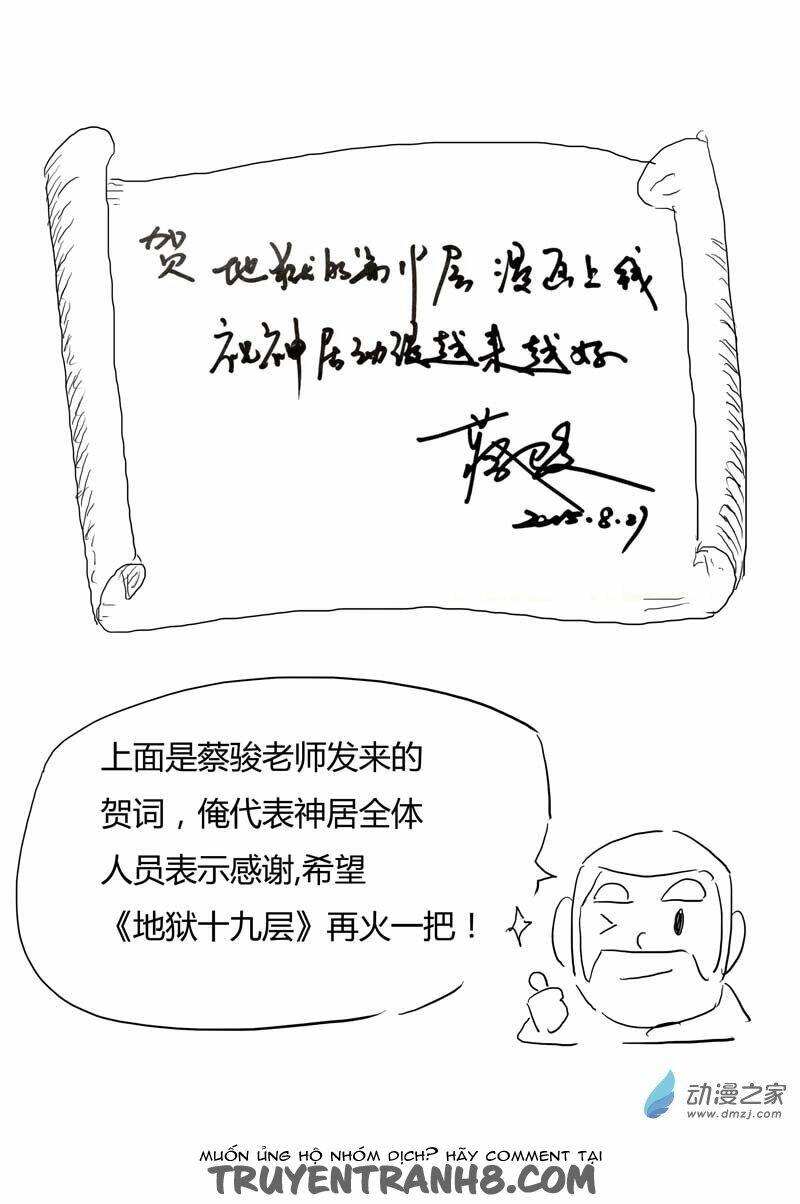 贺 地狱的第19层 漫画上线
祝神居动漫越来越好
蔡骏
2015.8.27
上面是蔡骏老师发来的
贺词，俺代表神居全体
人员表示感谢,希望
《地狱十九层》再火一把！
动漫之家
www.dmzj.com
MUỐN ỦNG HỘ NHÓM DỊCH? HÃY COMMENT TẠI
TRUYENTRANH8.COM